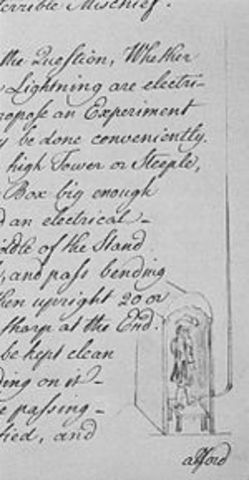 terrible Mischief.
the Question, Whether
Lightning are electri-
propose an Experiment
be done conveniently.
high Tower or Steeple,
Box big enough
an electrical
middle of the Stand
, and pass bending
then upright 20 or
sharp at the End.
be kept clean
ding on it
passing
ied, and
afford